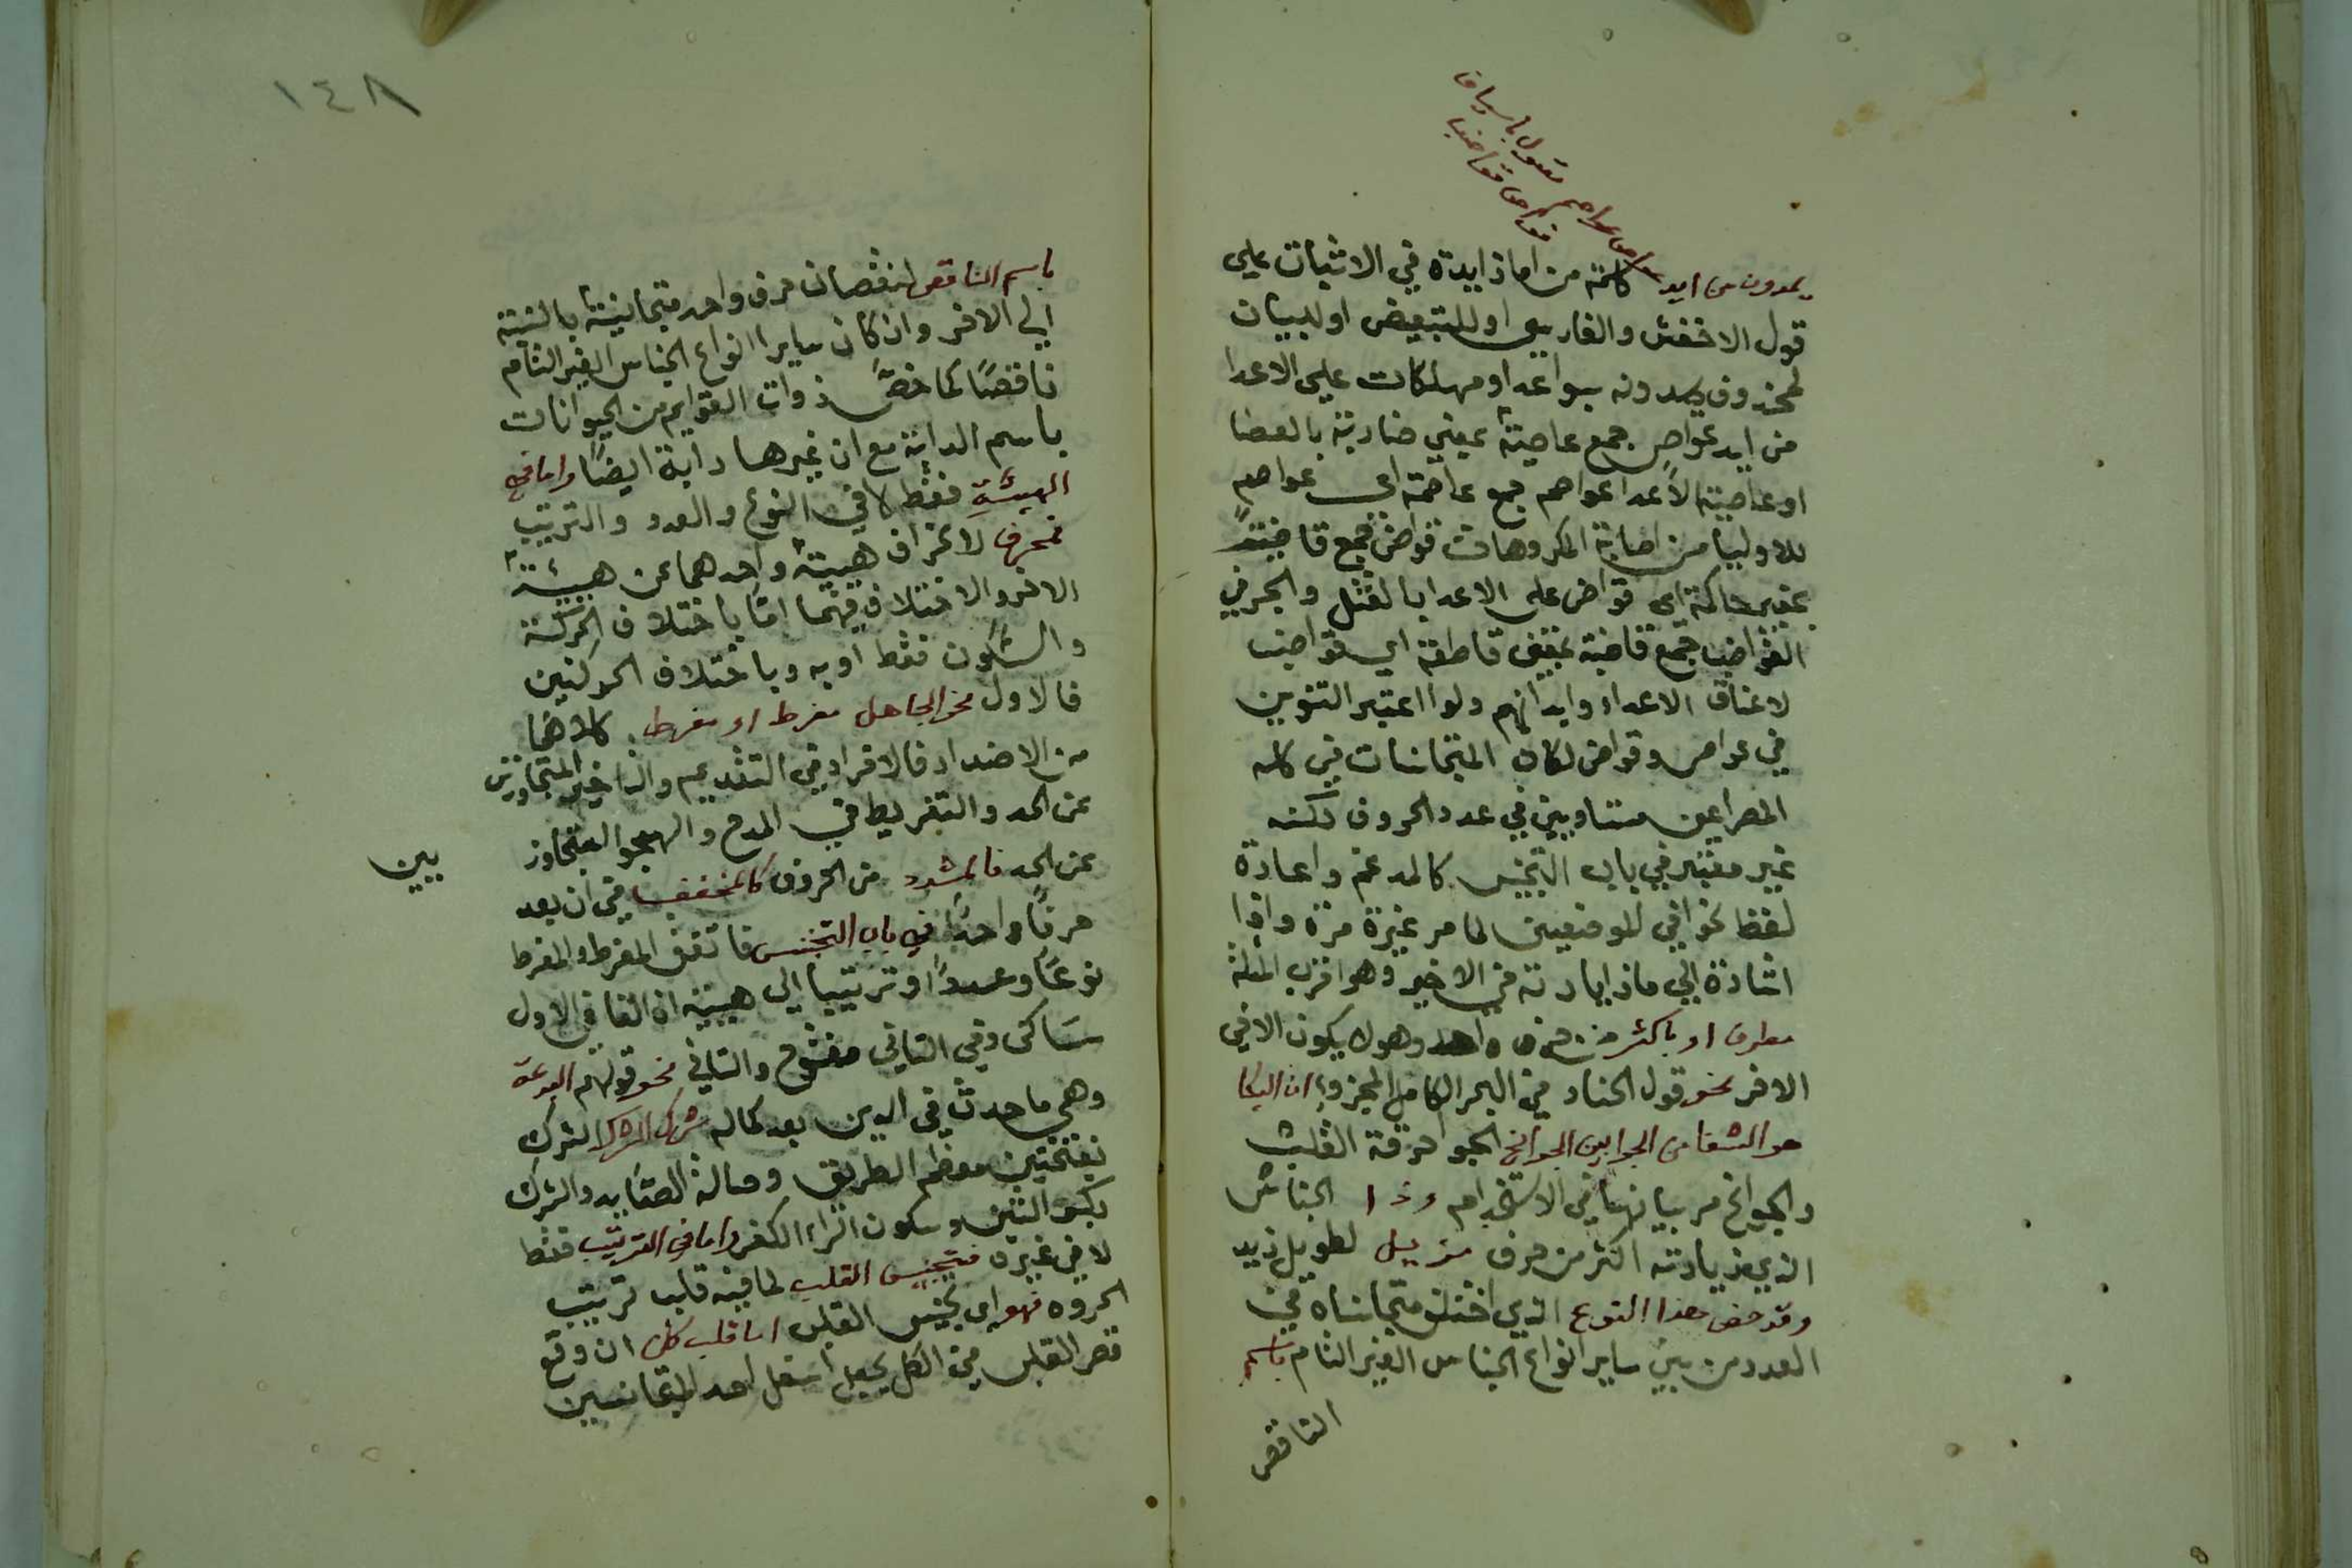 عواص عواصم تصول باسياف
قواض قواضب
يمدون من ايد كلمة من اما زايدة في الاثبات علي
قول الاخفش والفارسي او للتبعيض او لبيان
لمحذوف يمدونه سواعد او مهلكات علي الاعدا
من ايد عواص جمع عاصية بمعني ضاربة بالعصا
او عاصية الاعدا عواصم جمع عاصمة اي عواصم
للاوليا من اصابة المكروهات قواض جمع قاضية
بمعني حاكمة اي قواض علي الاعدا بالقتل والجر في
القواضب جمع قاضبة بمعني قاطعة اي قواضب
لاعناق الاعداء وابدانهم ولو اعتبر التنوين
في عواص وقواض لكان المتجانسات في كله
المصراعين متساويين في عدد الحروف لكنه
غير معتبر في باب التجنيس كالمدغم واعادة
لفظ نحو في الموضعين لما مر غيرة مرة واذا
اشارة الي ما زيادته في الاخير وهو اقرب امثلة
مطرف او باكثر من حرف واحد وهو لا يكون الا في
الاخر نحو قول الخنساء في البحر الكامل المجزو ان البكا
هو الشفا من الجوا بين الجوانح الجوا حرقة القلب
والجوانح مر بيانها في الاستخدام وذا الجناس
الذي زيادته اكثر من حرف مذيل لطويل ذيله
وقد خص هذا النوع الذي اختلف متجانساه في
العدد من بين ساير انواع الجناس الغير التام باسم
الناقص
١٤٨
باسم الناقص لنقصان حرف واحد متجانسية بالنسبة
الي الاخر وان كان ساير انواع الجناس الغير التام
ناقصًا كما خصّ ذوات القوايم من الحيوانات
باسم الدابة مع ان غيرها دابة ايضًا واما في
الهيئة فقط لا في النوع والعدد والترتيب
فمحرف لانحراف هيئة واحدهما عن هيئة
الاخر والاختلاف فيهما امّا باختلاف الحركة
والسكون فقط او به وباختلاف الحركتين
فالاول نحو الجاهل مفرط او مفرط كلاهما
من الاضداد فالافراد في التقديم والتاخير المتجاوزين
عن الحد والتفريط في المدح والهجو المتجاوز
بين
عن الحد فالمشدد من الحروف كالمخفف في ان يعد
حرفًا واحدًا في باب التجنيس فاتفق المفرط والمفرط
نوعًا وعددًا وترتيبا الي هيئته اذ الفا في الاول
ساكن وفي الثاني مفتوح والثاني نحو قولهم البدعة
وهي ما حدث في الدين بعد كماله شرك الشرك الشرك
بفتحتين معظم الطريق وحبالة الصّايد والشرك
بكسر الشين وسكون الراء الكفر واما في الترتيب فقط
لا في غيره فتجنيس القلب لما فيه قلب ترتيب
الحروف فهو اي تجنيس القلب اما قلب كل ان وقع
قصر القلب في الكل بجعل اسفل احد المتجانسين